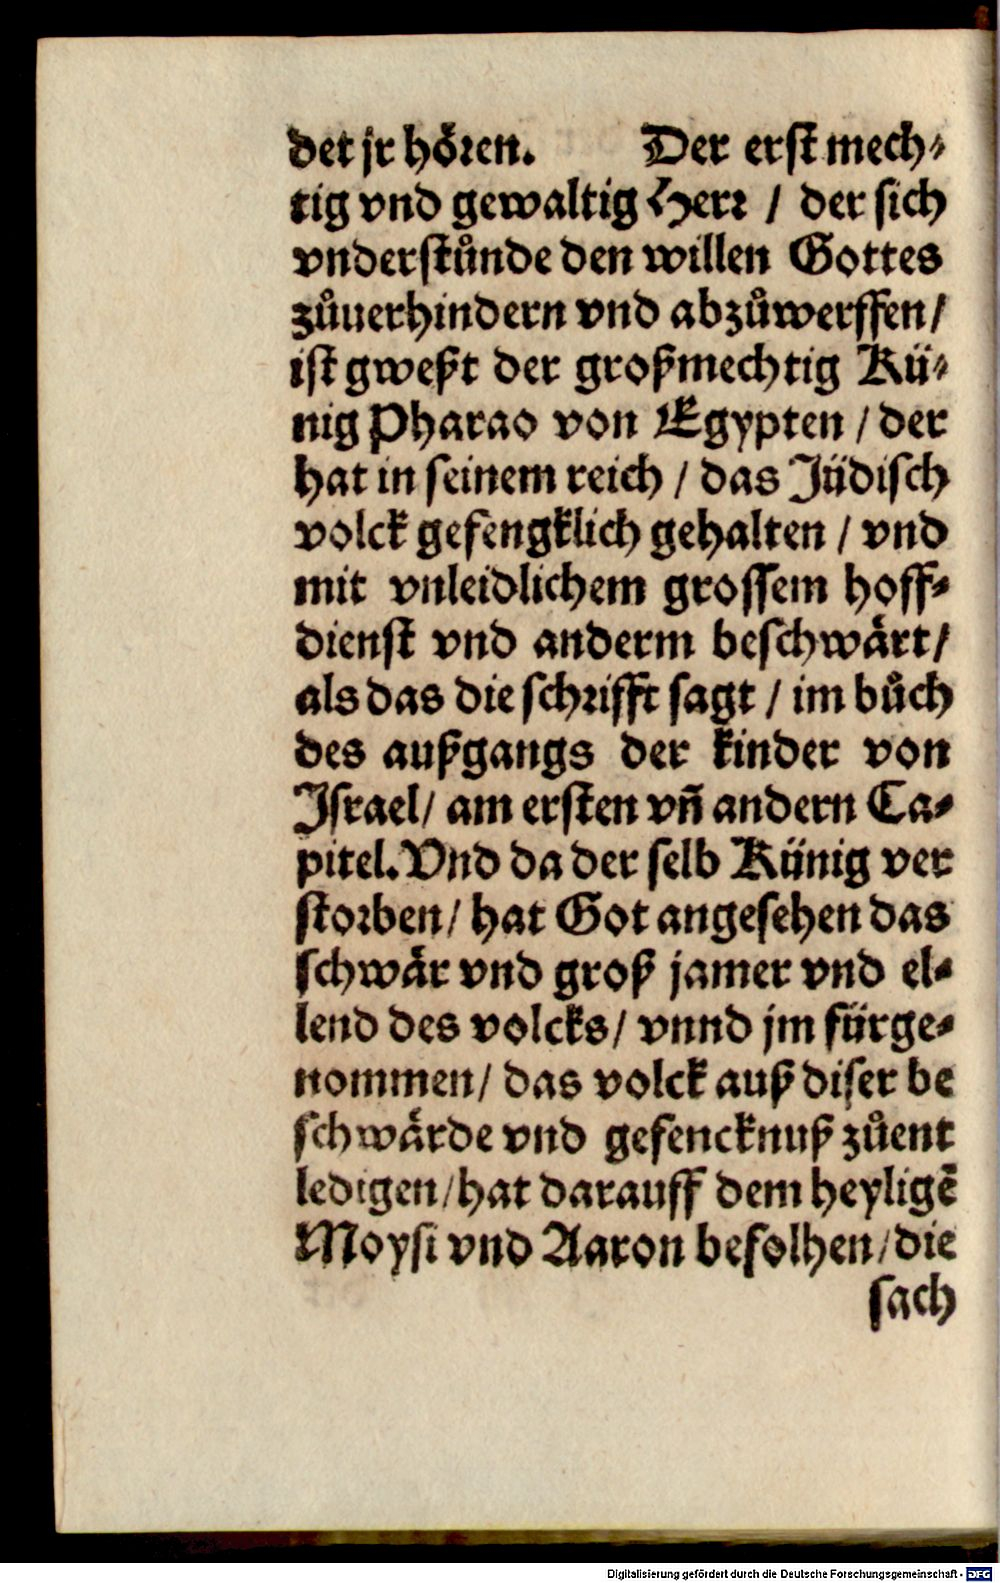 det jr hören. Der erst mech-
tig vnd gewaltig Herr / der sich
vnderstůnde den willen Gottes
zůuerhindern vnd abzůwerffen/
ist gweßt der großmechtig Kü-
nig Pharao von Egypten / der
hat in seinem reich / das Jüdisch
volck gefengklich gehalten / vnd
mit vnleidlichem grossem hoff-
dienst vnd anderm beschwärt/
als das die schrifft sagt / im bůch
des außgangs der kinder von
Israel/ am ersten vñ andern Ca-
pitel. Vnd da der selb Künig ver
storben/ hat Got angesehen das
schwär vnd groß jamer vnd el-
lend des volcks/ vnnd jm fürge-
nommen/ das volck auß diser be
schwärde vnd gefencknuß zůent
ledigen/hat darauff dem heyligē
Moysi vnd Aaron befolhen/die
sach
Digitalisierung gefördert durch die Deutsche Forschungsgemeinschaft - DFG